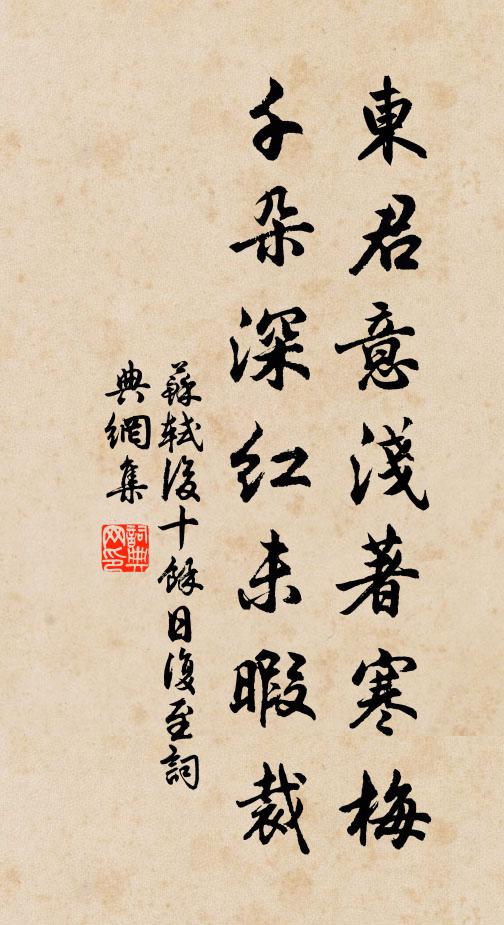 東君意淺著寒梅
千朵深紅未暇裁
蘇軾後十餘日復至詞
典網集
詞典
网印